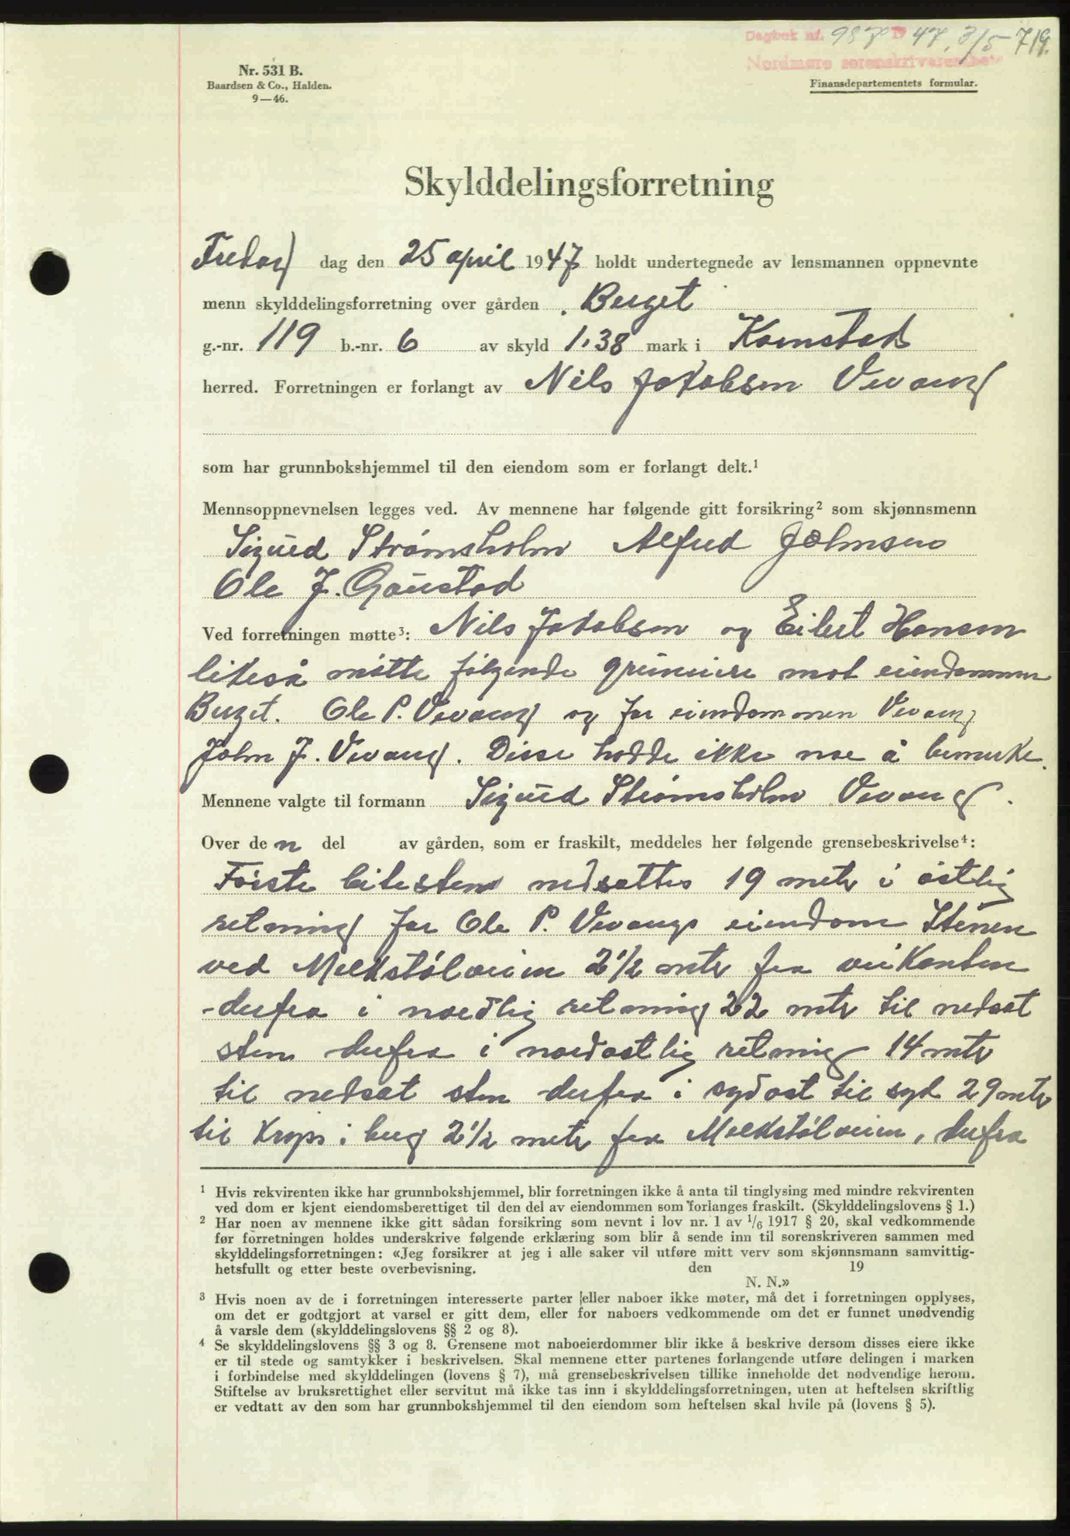 Dagbok nr. 987 1947, 3/5 719.
Nordmøre sorenskriverembete
Nr. 531 B.
Baardsen & Co., Halden.
9—46.
Finansdepartementets formular.
Skylddelingsforretning
Fredag dag den 25 april 1947 holdt undertegnede av lensmannen oppnevnte
menn skylddelingsforretning over gården Berget
g.-nr. 119 b.-nr. 6 av skyld 1.38 mark i Kornstad
herred. Forretningen er forlangt av Nils Jakobsen Vevang
som har grunnbokshjemmel til den eiendom som er forlangt delt.¹
Mennsoppnevnelsen legges ved. Av mennene har følgende gitt forsikring² som skjønnsmenn
Sigurd Strømsholm Alfred Johnsen
Ole J. Gaustad
Ved forretningen møtte³: Nils Jakobsen og Eilert Hansen
likeså møtte følgende grunneiere mot eiendommen
Berget. Ole P. Vevang og for eiendommen Vevang
John J. Vevang. Disse hadde ikke noe å bemerke.
Mennene valgte til formann Sigurd Strømsholm Vevang.
Over den del av gården, som er fraskilt, meddeles her følgende grensebeskrivelse⁴:
Første bitesten nedsattes 19 metr i østlig
retning for Ole P. Vevangs eiendom Stenen
ved Melkstølveien 2½ metr fra veikanten
-derfra i nordlig retning 22 mtr til nedsat
sten derfra i nordostlig retning 14 mtr
til nedsat sten derfra i sydost til syd 29 mtr
til Kryss i berg 2½ metr fra Melkstølveien, derfra
¹ Hvis rekvirenten ikke har grunnbokshjemmel, blir forretningen ikke å anta til tinglysing med mindre rekvirenten
ved dom er kjent eiendomsberettiget til den del av eiendommen som forlanges fraskilt. (Skylddelingslovens § 1.)
² Har noen av mennene ikke gitt sådan forsikring som nevnt i lov nr. 1 av 1/6 1917 § 20, skal vedkommende
før forretningen holdes underskrive følgende erklæring som blir å sende inn til sorenskriveren sammen med
skylddelingsforretningen: «Jeg forsikrer at jeg i alle saker vil utføre mitt verv som skjønnsmann samvittig-
hetsfullt og etter beste overbevisning. den 19
N. N.»
³ Hvis noen av de i forretningen interesserte parter eller naboer ikke møter, må det i forretningen opplyses,
om det er godtgjort at varsel er gitt dem, eller for naboers vedkommende om det er funnet unødvendig
å varsle dem (skylddelingslovens §§ 2 og 8).
⁴ Se skylddelingslovens §§ 3 og 8. Grensene mot naboeierdommer blir ikke å beskrive dersom disses eiere ikke
er til stede og samtykker i beskrivelsen. Skal mennene etter partenes forlangende utføre delingen i marken
i forbindelse med skylddelingen (lovens § 7), må grensebeskrivelsen tillike inneholde det nødvendige herom.
Stiftelse av bruksrettighet eller servitut må ikke tas inn i skylddelingsforretningen, uten at heftelsen skriftlig
er vedtatt av den som har grunnbokshjemmel til den eiendom som heftelsen skal hvile på (lovens § 5).